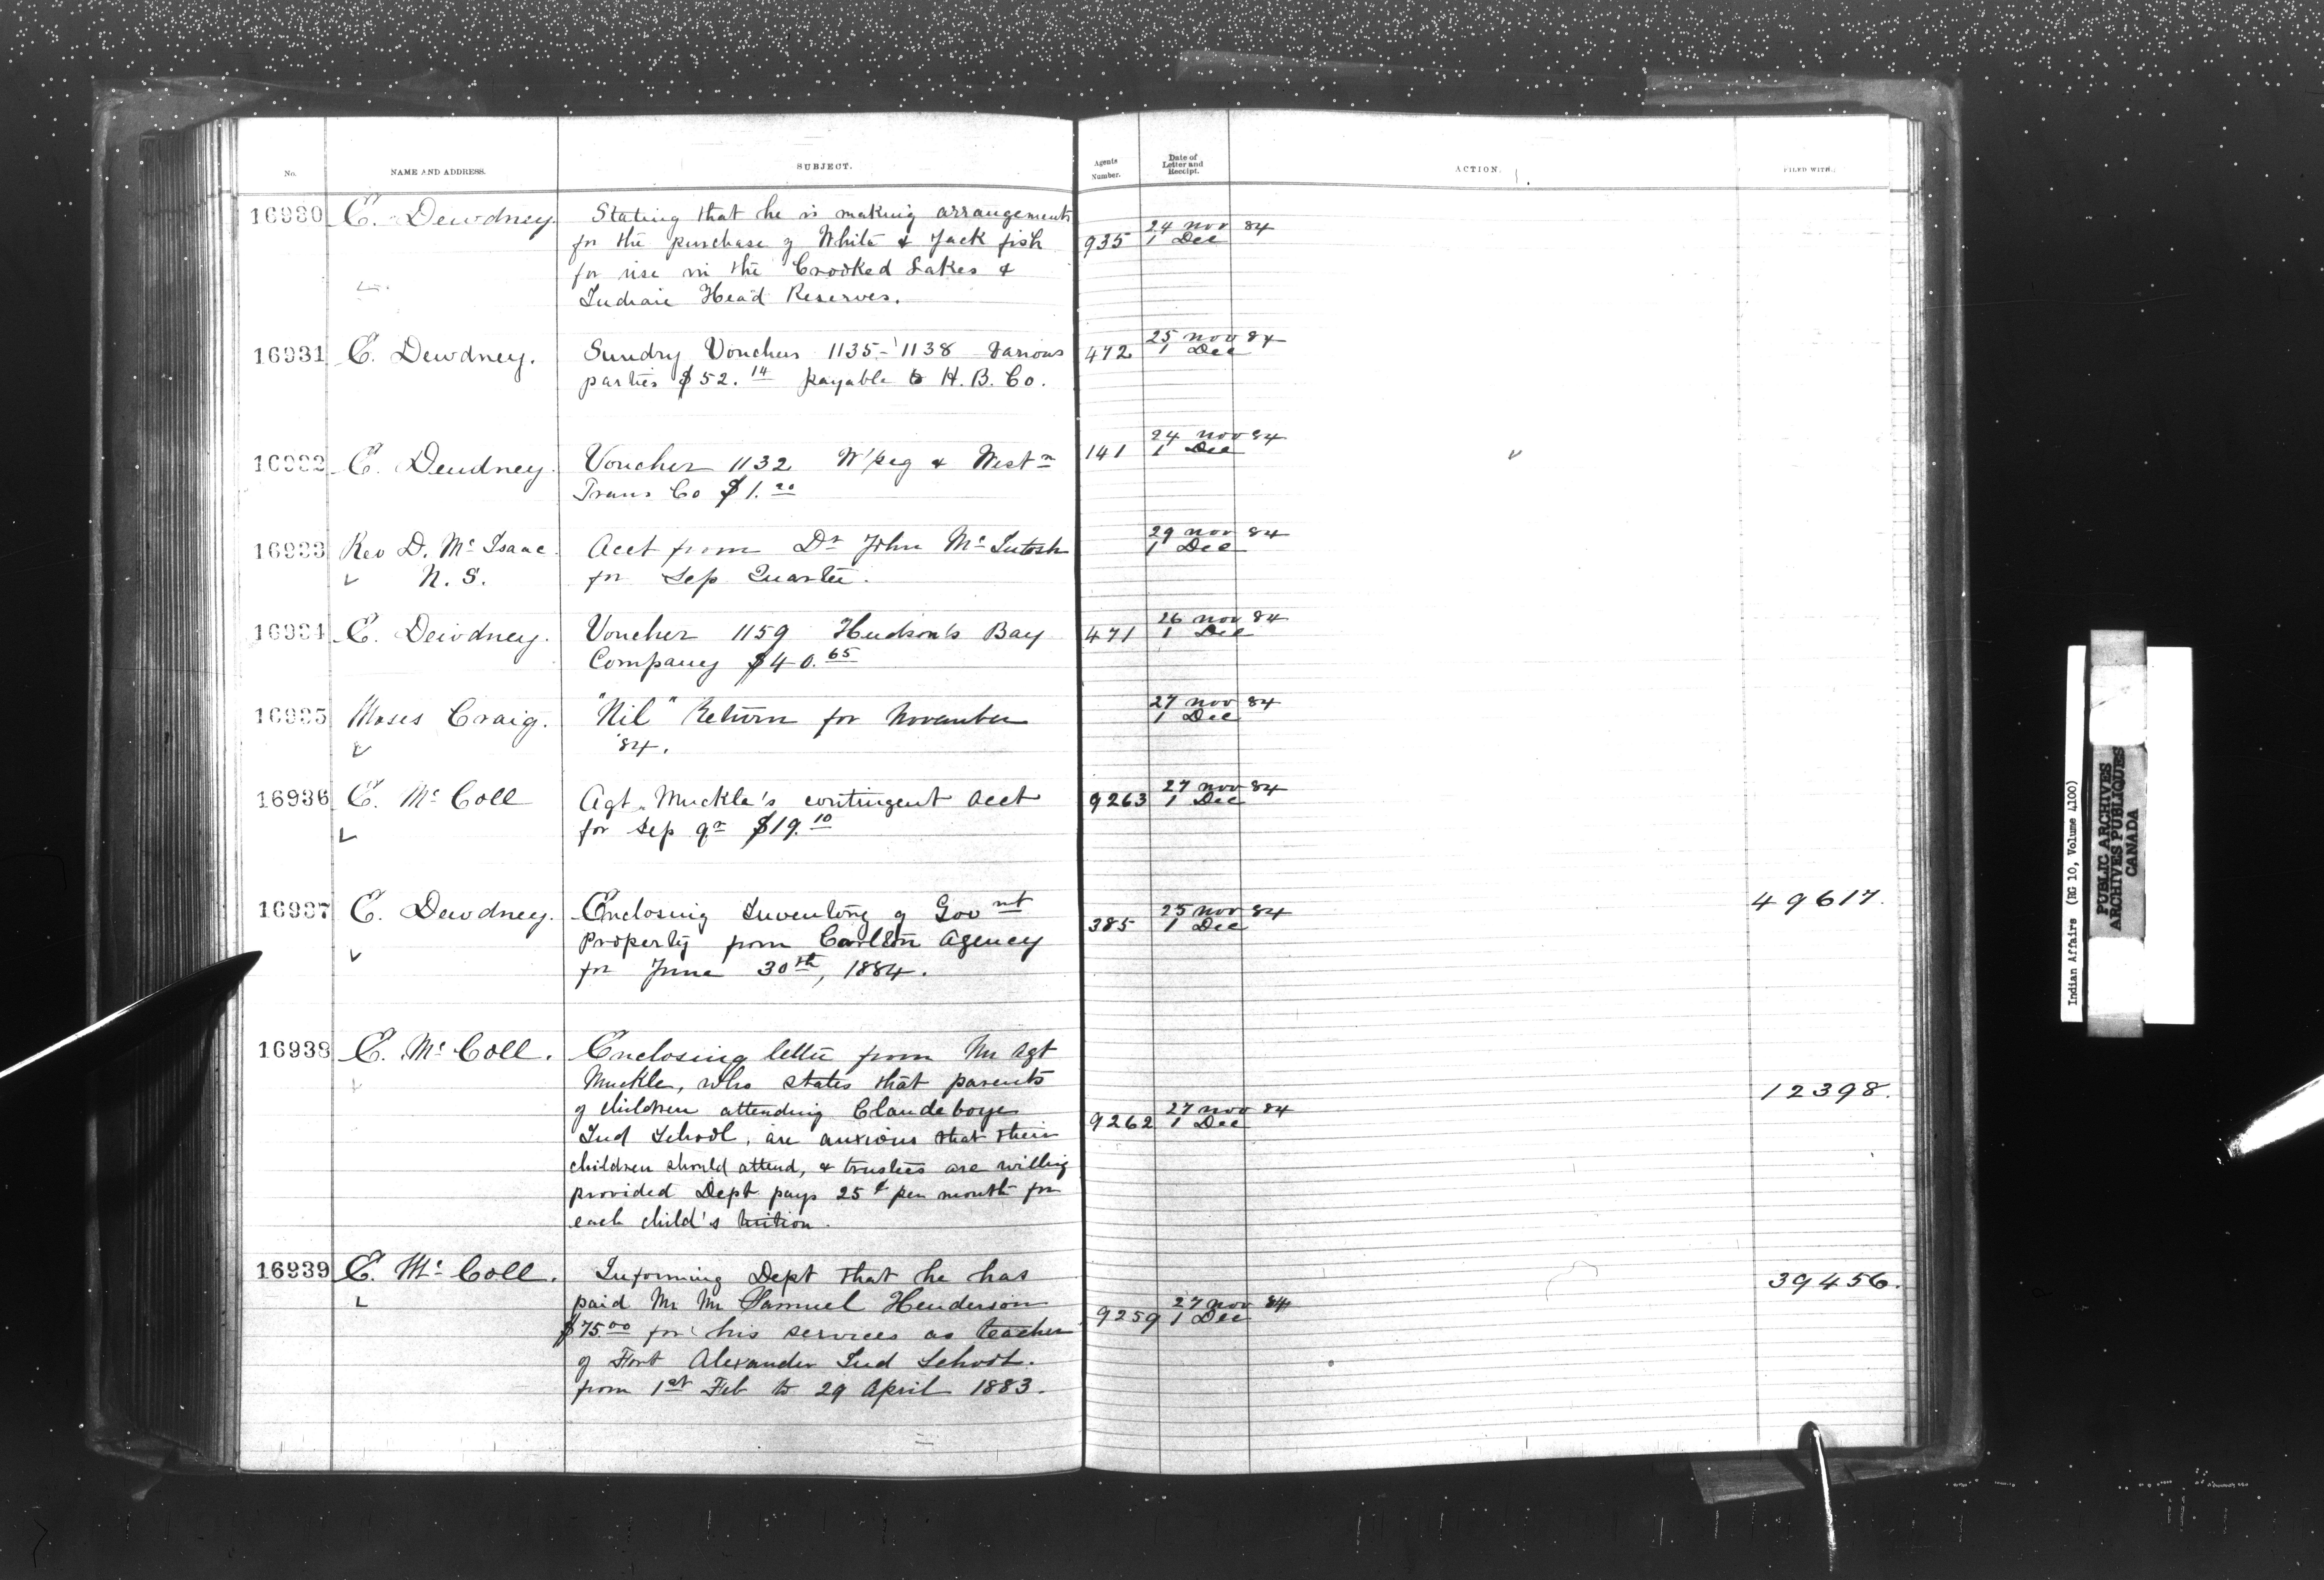 No.
NAME AND ADDRESS.
SUBJECT.
Agents Number.
Date of Letter and Receipt.
ACTION.
FILED WITH.
16930 E. Dewdney. Stating that he is making arrangements
for the purchase of White & Jack fish
for use in the Crooked Lakes &
Indian Head Reserves.
935
24 Nov 84
1 Dec
16931 E. Dewdney. Sundry Vouchers 1135-1138 various
parties $52.14 payable to H. B. Co.
472
25 Nov 84
1 Dec
16932 E. Dewdney. Voucher 1132 W'peg & Westn
Trans Co $1.20
141
24 Nov 84
1 Dec
16933 Rev D. Mc Isaac Acct from Dr John Mc Intosh
N. S. for Sep Quarter.
29 Nov 84
1 Dec
16934 E. Dewdney. Voucher 1159 Hudson's Bay
Company $40.65
471
26 Nov 84
1 Dec
16935 Moses Craig. "Nil" Return for November
'84.
27 Nov 84
1 Dec
16936 E. Mc Coll Agt. Muckle's contingent acct
for Sep qr $19.10
9263
27 Nov 84
1 Dec
16937 E. Dewdney. Enclosing Inventory of Govnt
Property from Carlton Agency
for June 30th, 1884.
385
25 Nov 84
1 Dec
49617.
16938 E. Mc Coll. Enclosing letter from Mr Agt
Muckle, who states that parents
of children attending Clandeboye
Ind School, are anxious that their
children should attend, & trustees are willing
provided Dept pays 25¢ per month for
each child's tuition.
9262
27 Nov 84
1 Dec
12398.
16939 E. Mc Coll. Informing Dept that he has
paid Mr Mr Samuel Henderson
$75.00 for his services as teacher
of Fort Alexander Ind School.
from 1st Feb to 29 April 1883.
9259
27 Nov 84
1 Dec
39456.
Indian Affairs (RG 10, Volume 4100)
PUBLIC ARCHIVES
ARCHIVES PUBLIQUES
CANADA